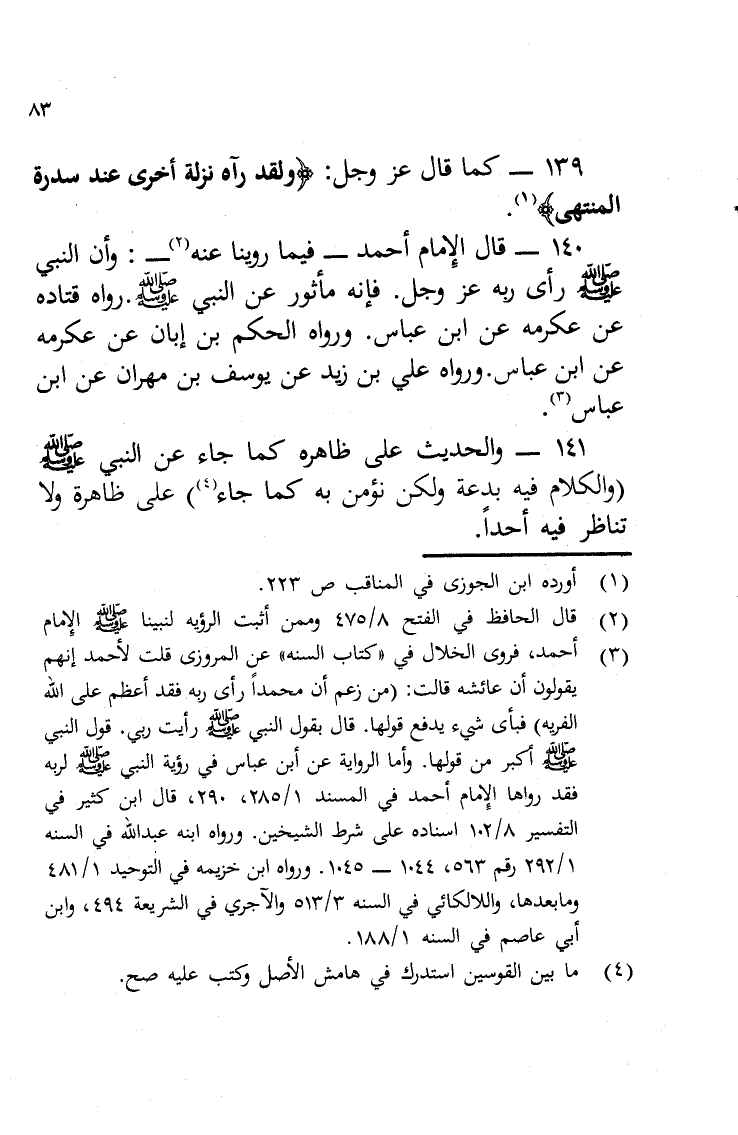 ٨٣
١٣٩ — كما قال عز وجل: ﴿ولقد رآه نزلة أخرى عند سدرة
المنتهى﴾(١).
١٤٠ — قال الإمام أحمد — فيما روينا عنه(٢)— : وأن النبي
ﷺ رأى ربه عز وجل. فإنه مأثور عن النبي ﷺ.رواه قتاده
عن عكرمه عن ابن عباس. ورواه الحكم بن إبان عن عكرمه
عن ابن عباس.ورواه علي بن زيد عن يوسف بن مهران عن ابن
عباس(٣).
١٤١ — والحديث على ظاهره كما جاء عن النبي ﷺ
(والكلام فيه بدعة ولكن نؤمن به كما جاء(٤)) على ظاهرة ولا
تناظر فيه أحداً.
(١) أورده ابن الجوزى في المناقب ص ٢٢٣.
(٢) قال الحافظ في الفتح ٤٧٥/٨ وممن أثبت الرؤيه لنبينا ﷺ الإمام
(٣) أحمد، فروى الخلال في «كتاب السنه» عن المروزى قلت لأحمد إنهم
يقولون أن عائشه قالت: (من زعم أن محمداً رأى ربه فقد أعظم على الله
الفريه) فبأى شيء يدفع قولها. قال بقول النبي ﷺ رأيت ربي. قول النبي
ﷺ أكبر من قولها. وأما الرواية عن أبن عباس في رؤية النبي ﷺ لربه
فقد رواها الإمام أحمد في المسند ٢٨٥/١، ٢٩٠، قال ابن كثير في
التفسير ١٠٢/٨ اسناده على شرط الشيخين. ورواه ابنه عبدالله في السنه
٢٩٢/١ رقم ٥٦٣، ١٠٤٤ — ١٠٤٥. ورواه ابن خزيمه في التوحيد ٤٨١/١
ومابعدها، واللالكائي في السنه ٥١٣/٣ والآجري في الشريعة ٤٩٤، وابن
أبي عاصم في السنه ١٨٨/١.
(٤) ما بين القوسين استدرك في هامش الأصل وكتب عليه صح.